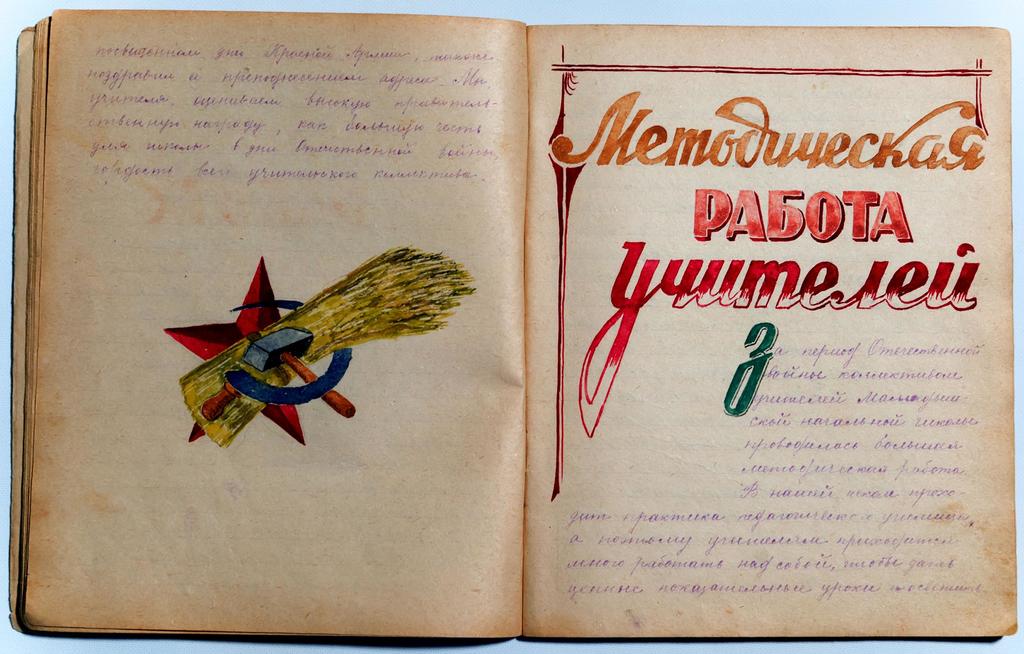 посвященном дню Красной Армии, также
поздравил и преподнесением адреса. Мы
учителя, оцениваем высокую правитель-
ственную награду, как большую честь
для школы в дни Отечественной войны,
гордость всего учительского коллектива.
Методическая
РАБОТА
Учителей
За период Отечественной
войны коллективом
учителей
ской начальной школы
проводилась большая
методическая работа.
В нашей школе прохо-
дит практика педагогического училища,
а поэтому учителям приходится
много работать над собой, чтобы дать
ценные показательные уроки и осветить